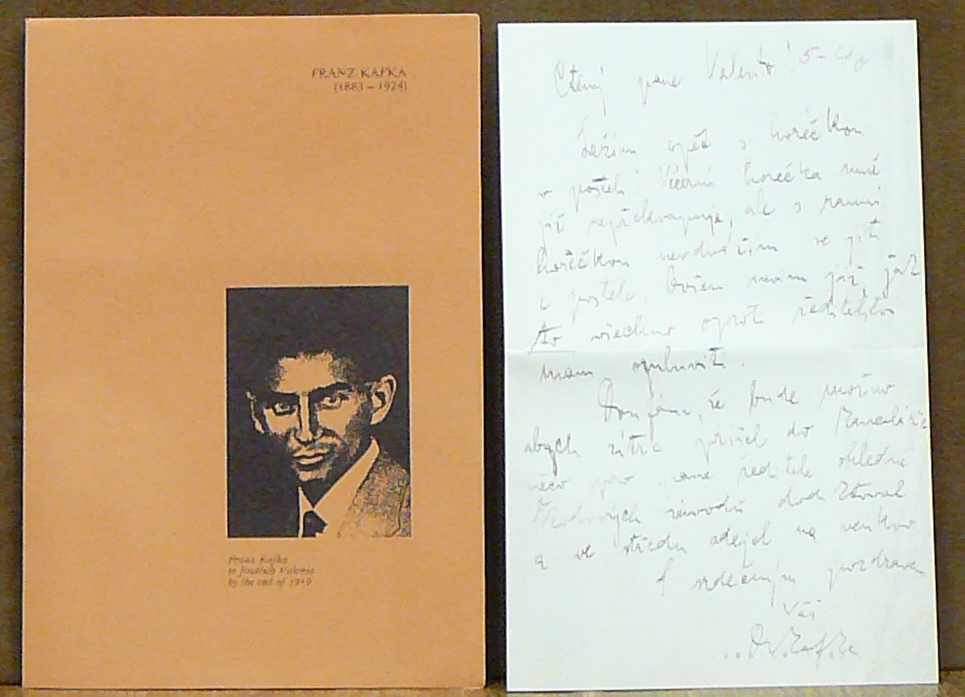 FRANZ KAFKA
(1883 – 1924)
Franz Kafka
to
by the end of 1919
Ctěný pane Valento!
Ležím opět s horečkou
v posteli. Večerní horečka mně
již nepřekvapuje, ale s ranní
horečkou neodvážím se jít
z postele. Ovšem nevím již, jak
to všechno oproti řediteli
mám omluvit.
Doufám, že bude možno
abych zítra přišel do kanceláře
něco pro pane ředitele ohledně
závodů
a ve středu odejel na venkov
S srdečným pozdravem
Váš
Dr. Kafka